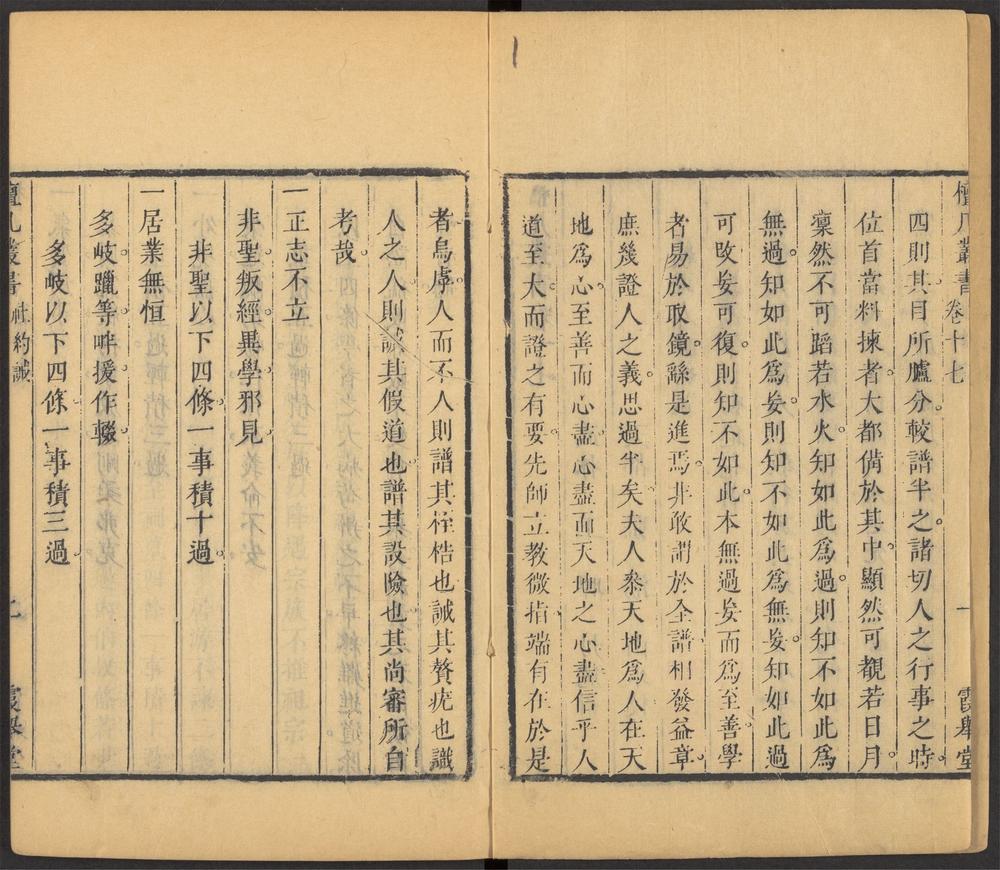 檀几叢書 卷十七 一 霞舉堂
四則其目所臚分較譜半之諸切人之行事之時
位首當料揀者大都備於其中顯然可覩若日月
稟然不可蹈若水火知如此爲過則知不如此爲
無過知如此爲妄則知不如此爲無妄知如此過
可改妄可復則知不如此本無過妄而爲至善學
者易於取鏡繇是進焉非敢謂於全譜相發益章
庶幾證人之義思過半矣夫人叅天地爲人在天
地爲心至善而心盡心盡而天地之心盡信乎人
道至大而證之有要先師立教微指端有在於是
者烏虖人而不人則譜其桎梏也誡其贅疣也譏
人之人則誡其假道也譜其設險也其尚審所自
考哉
一正志不立
非聖叛經異學邪見
非聖以下四條一事積十過
一居業無恒
多岐躐等畔援作輟
多岐以下四條一事積三過
檀几叢書 社約誡 霞舉堂